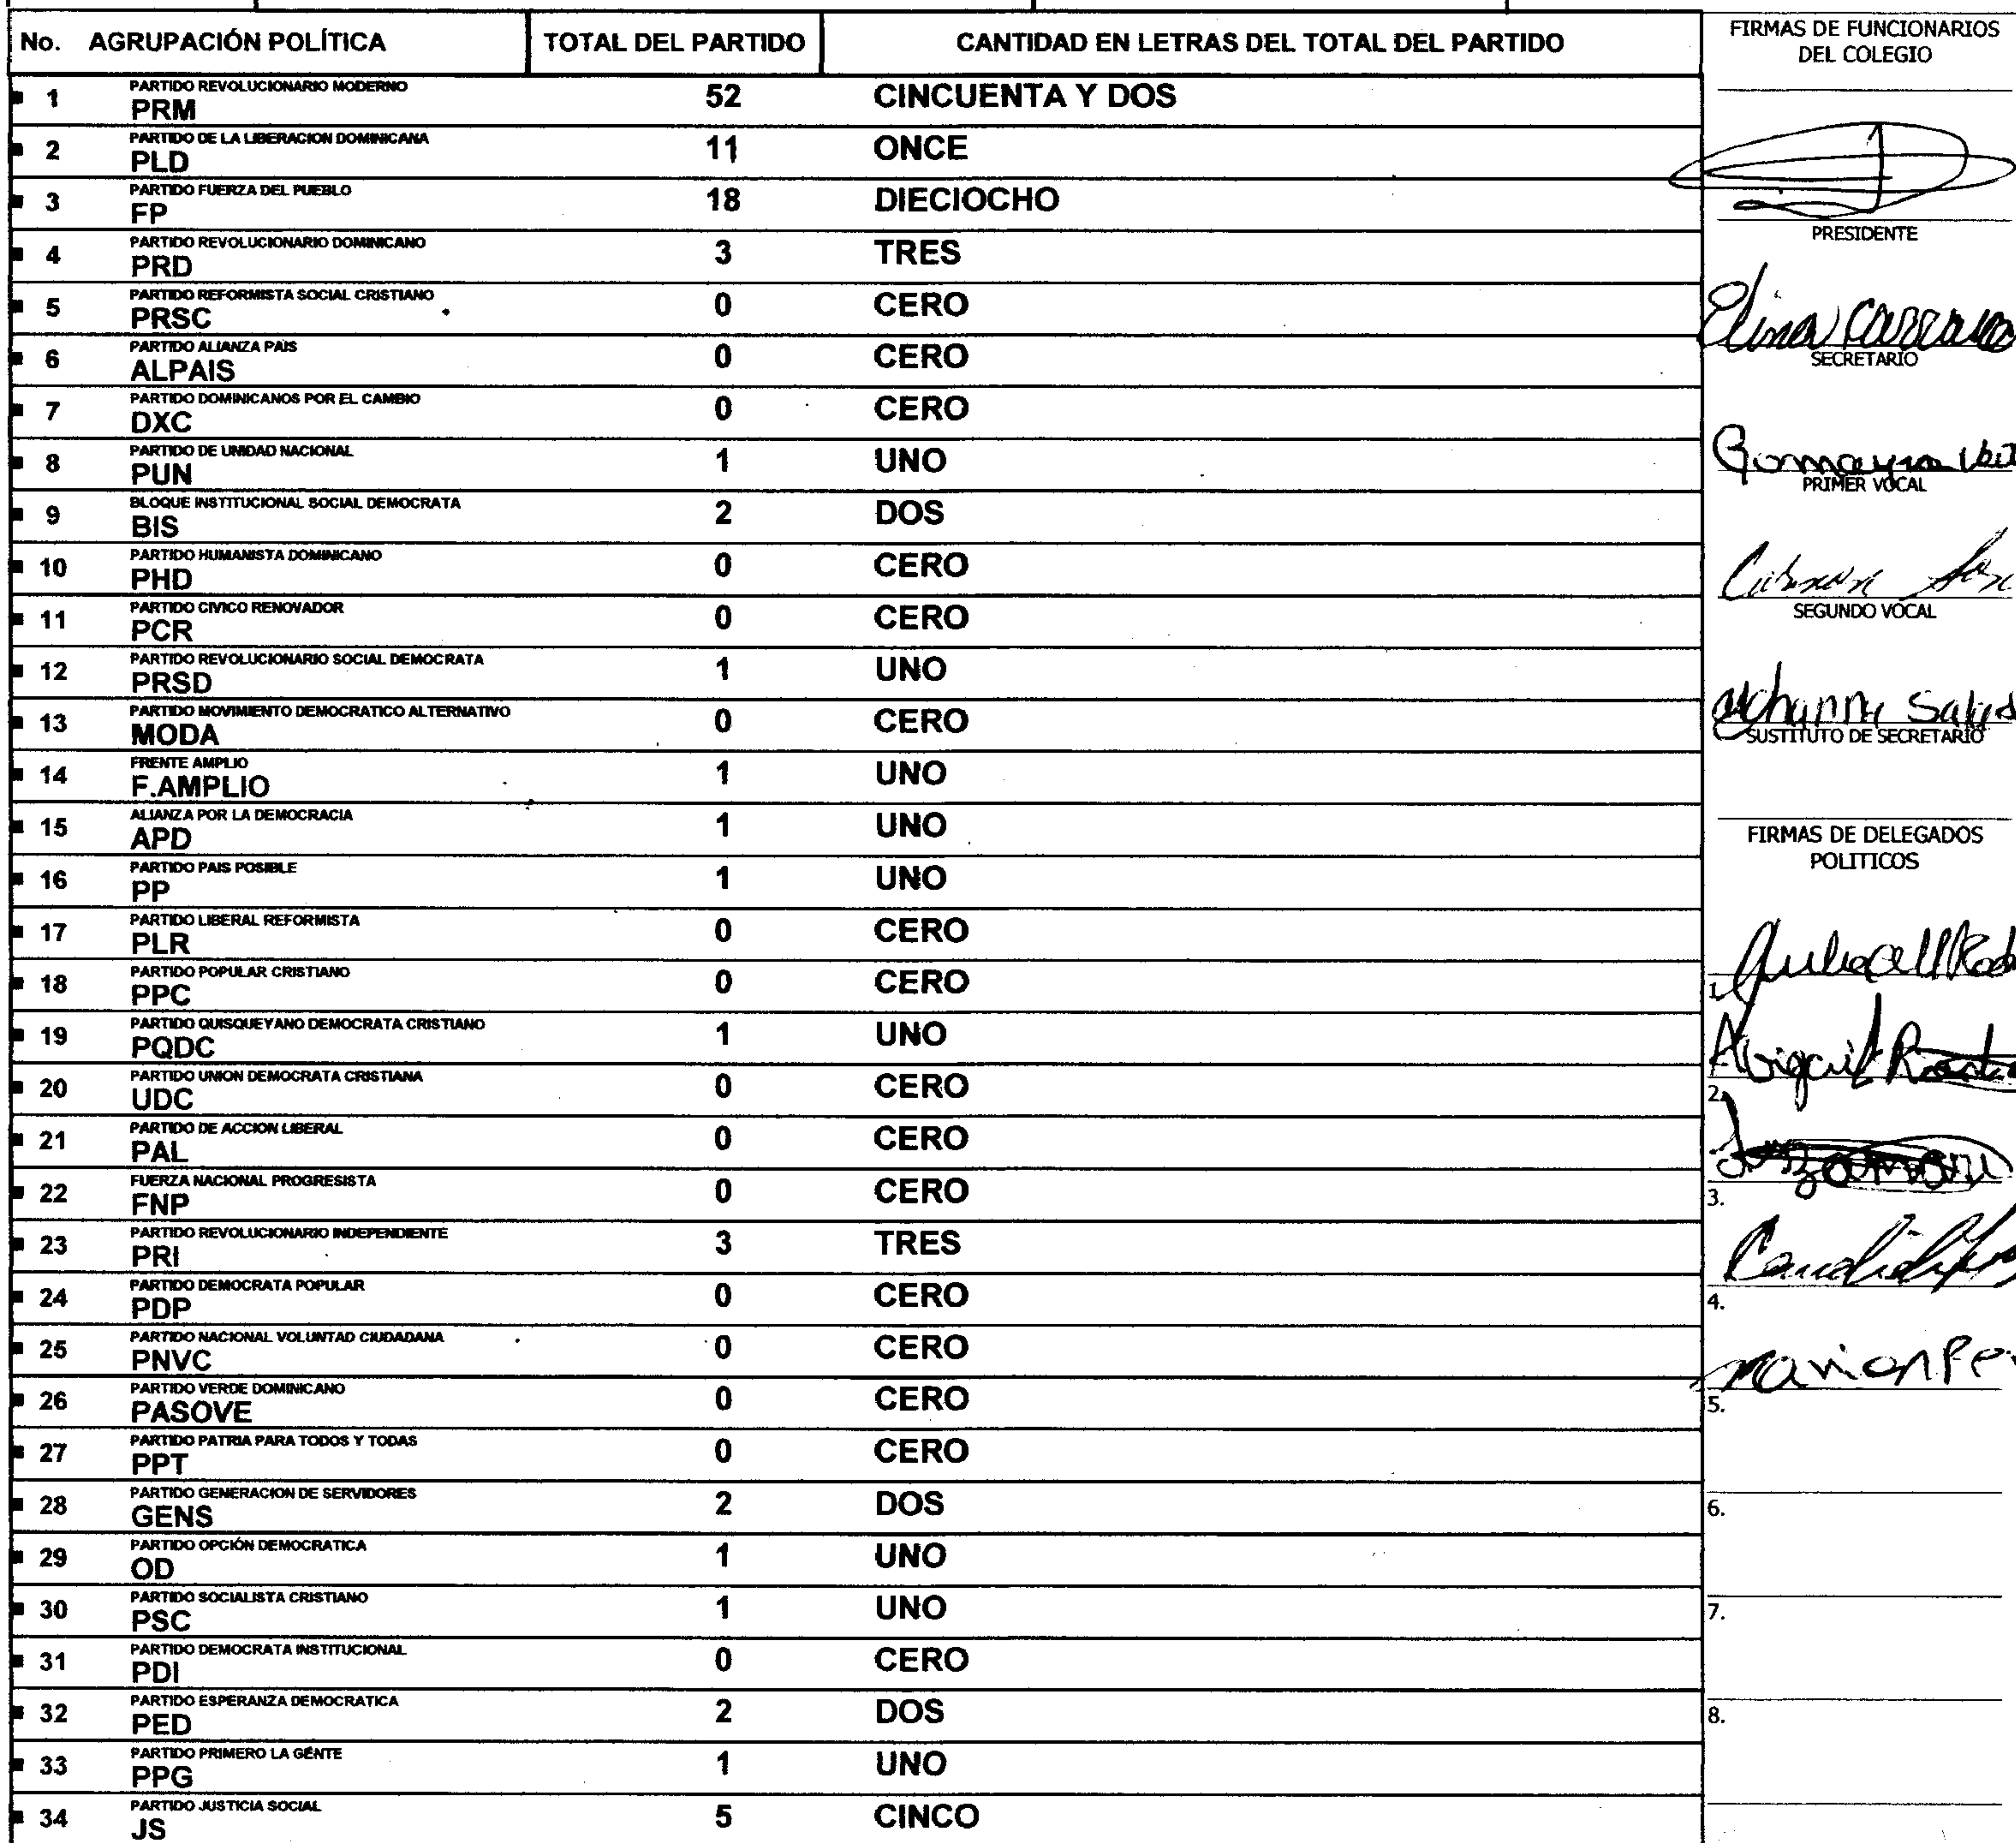 No. AGRUPACIÓN POLÍTICA TOTAL DEL PARTIDO CANTIDAD EN LETRAS DEL TOTAL DEL PARTIDO
PARTIDO REVOLUCIONARIO MODERNO
1 PRM 52 CINCUENTA Y DOS
PARTIDO DE LA LIBERACION DOMINICANA
2 PLD 11 ONCE
PARTIDO FUERZA DEL PUEBLO
3 FP 18 DIECIOCHO
PARTIDO REVOLUCIONARIO DOMINICANO
4 PRD 3 TRES
PARTIDO REFORMISTA SOCIAL CRISTIANO
5 PRSC 0 CERO
PARTIDO ALIANZA PAIS
6 ALPAIS 0 CERO
PARTIDO DOMINICANOS POR EL CAMBIO
7 DXC 0 CERO
PARTIDO DE UNIDAD NACIONAL
8 PUN 1 UNO
BLOQUE INSTITUCIONAL SOCIAL DEMOCRATA
9 BIS 2 DOS
PARTIDO HUMANISTA DOMINICANO
10 PHD 0 CERO
PARTIDO CIVICO RENOVADOR
11 PCR 0 CERO
PARTIDO REVOLUCIONARIO SOCIAL DEMOCRATA
12 PRSD 1 UNO
PARTIDO MOVIMIENTO DEMOCRATICO ALTERNATIVO
13 MODA 0 CERO
FRENTE AMPLIO
14 F.AMPLIO 1 UNO
ALIANZA POR LA DEMOCRACIA
15 APD 1 UNO
PARTIDO PAIS POSIBLE
16 PP 1 UNO
PARTIDO LIBERAL REFORMISTA
17 PLR 0 CERO
PARTIDO POPULAR CRISTIANO
18 PPC 0 CERO
PARTIDO QUISQUEYANO DEMOCRATA CRISTIANO
19 PQDC 1 UNO
PARTIDO UNION DEMOCRATA CRISTIANA
20 UDC 0 CERO
PARTIDO DE ACCION LIBERAL
21 PAL 0 CERO
FUERZA NACIONAL PROGRESISTA
22 FNP 0 CERO
PARTIDO REVOLUCIONARIO INDEPENDIENTE
23 PRI 3 TRES
PARTIDO DEMOCRATA POPULAR
24 PDP 0 CERO
PARTIDO NACIONAL VOLUNTAD CIUDADANA
25 PNVC 0 CERO
PARTIDO VERDE DOMINICANO
26 PASOVE 0 CERO
PARTIDO PATRIA PARA TODOS Y TODAS
27 PPT 0 CERO
PARTIDO GENERACION DE SERVIDORES
28 GENS 2 DOS
PARTIDO OPCIÓN DEMOCRATICA
29 OD 1 UNO
PARTIDO SOCIALISTA CRISTIANO
30 PSC 1 UNO
PARTIDO DEMOCRATA INSTITUCIONAL
31 PDI 0 CERO
PARTIDO ESPERANZA DEMOCRATICA
32 PED 2 DOS
PARTIDO PRIMERO LA GENTE
33 PPG 1 UNO
PARTIDO JUSTICIA SOCIAL
34 JS 5 CINCO
FIRMAS DE FUNCIONARIOS
DEL COLEGIO
PRESIDENTE
SECRETARIO
PRIMER VOCAL
SEGUNDO VOCAL
SUSTITUTO DE SECRETARIO
FIRMAS DE DELEGADOS
POLITICOS
1.
2.
3.
4.
5.
6.
7.
8.